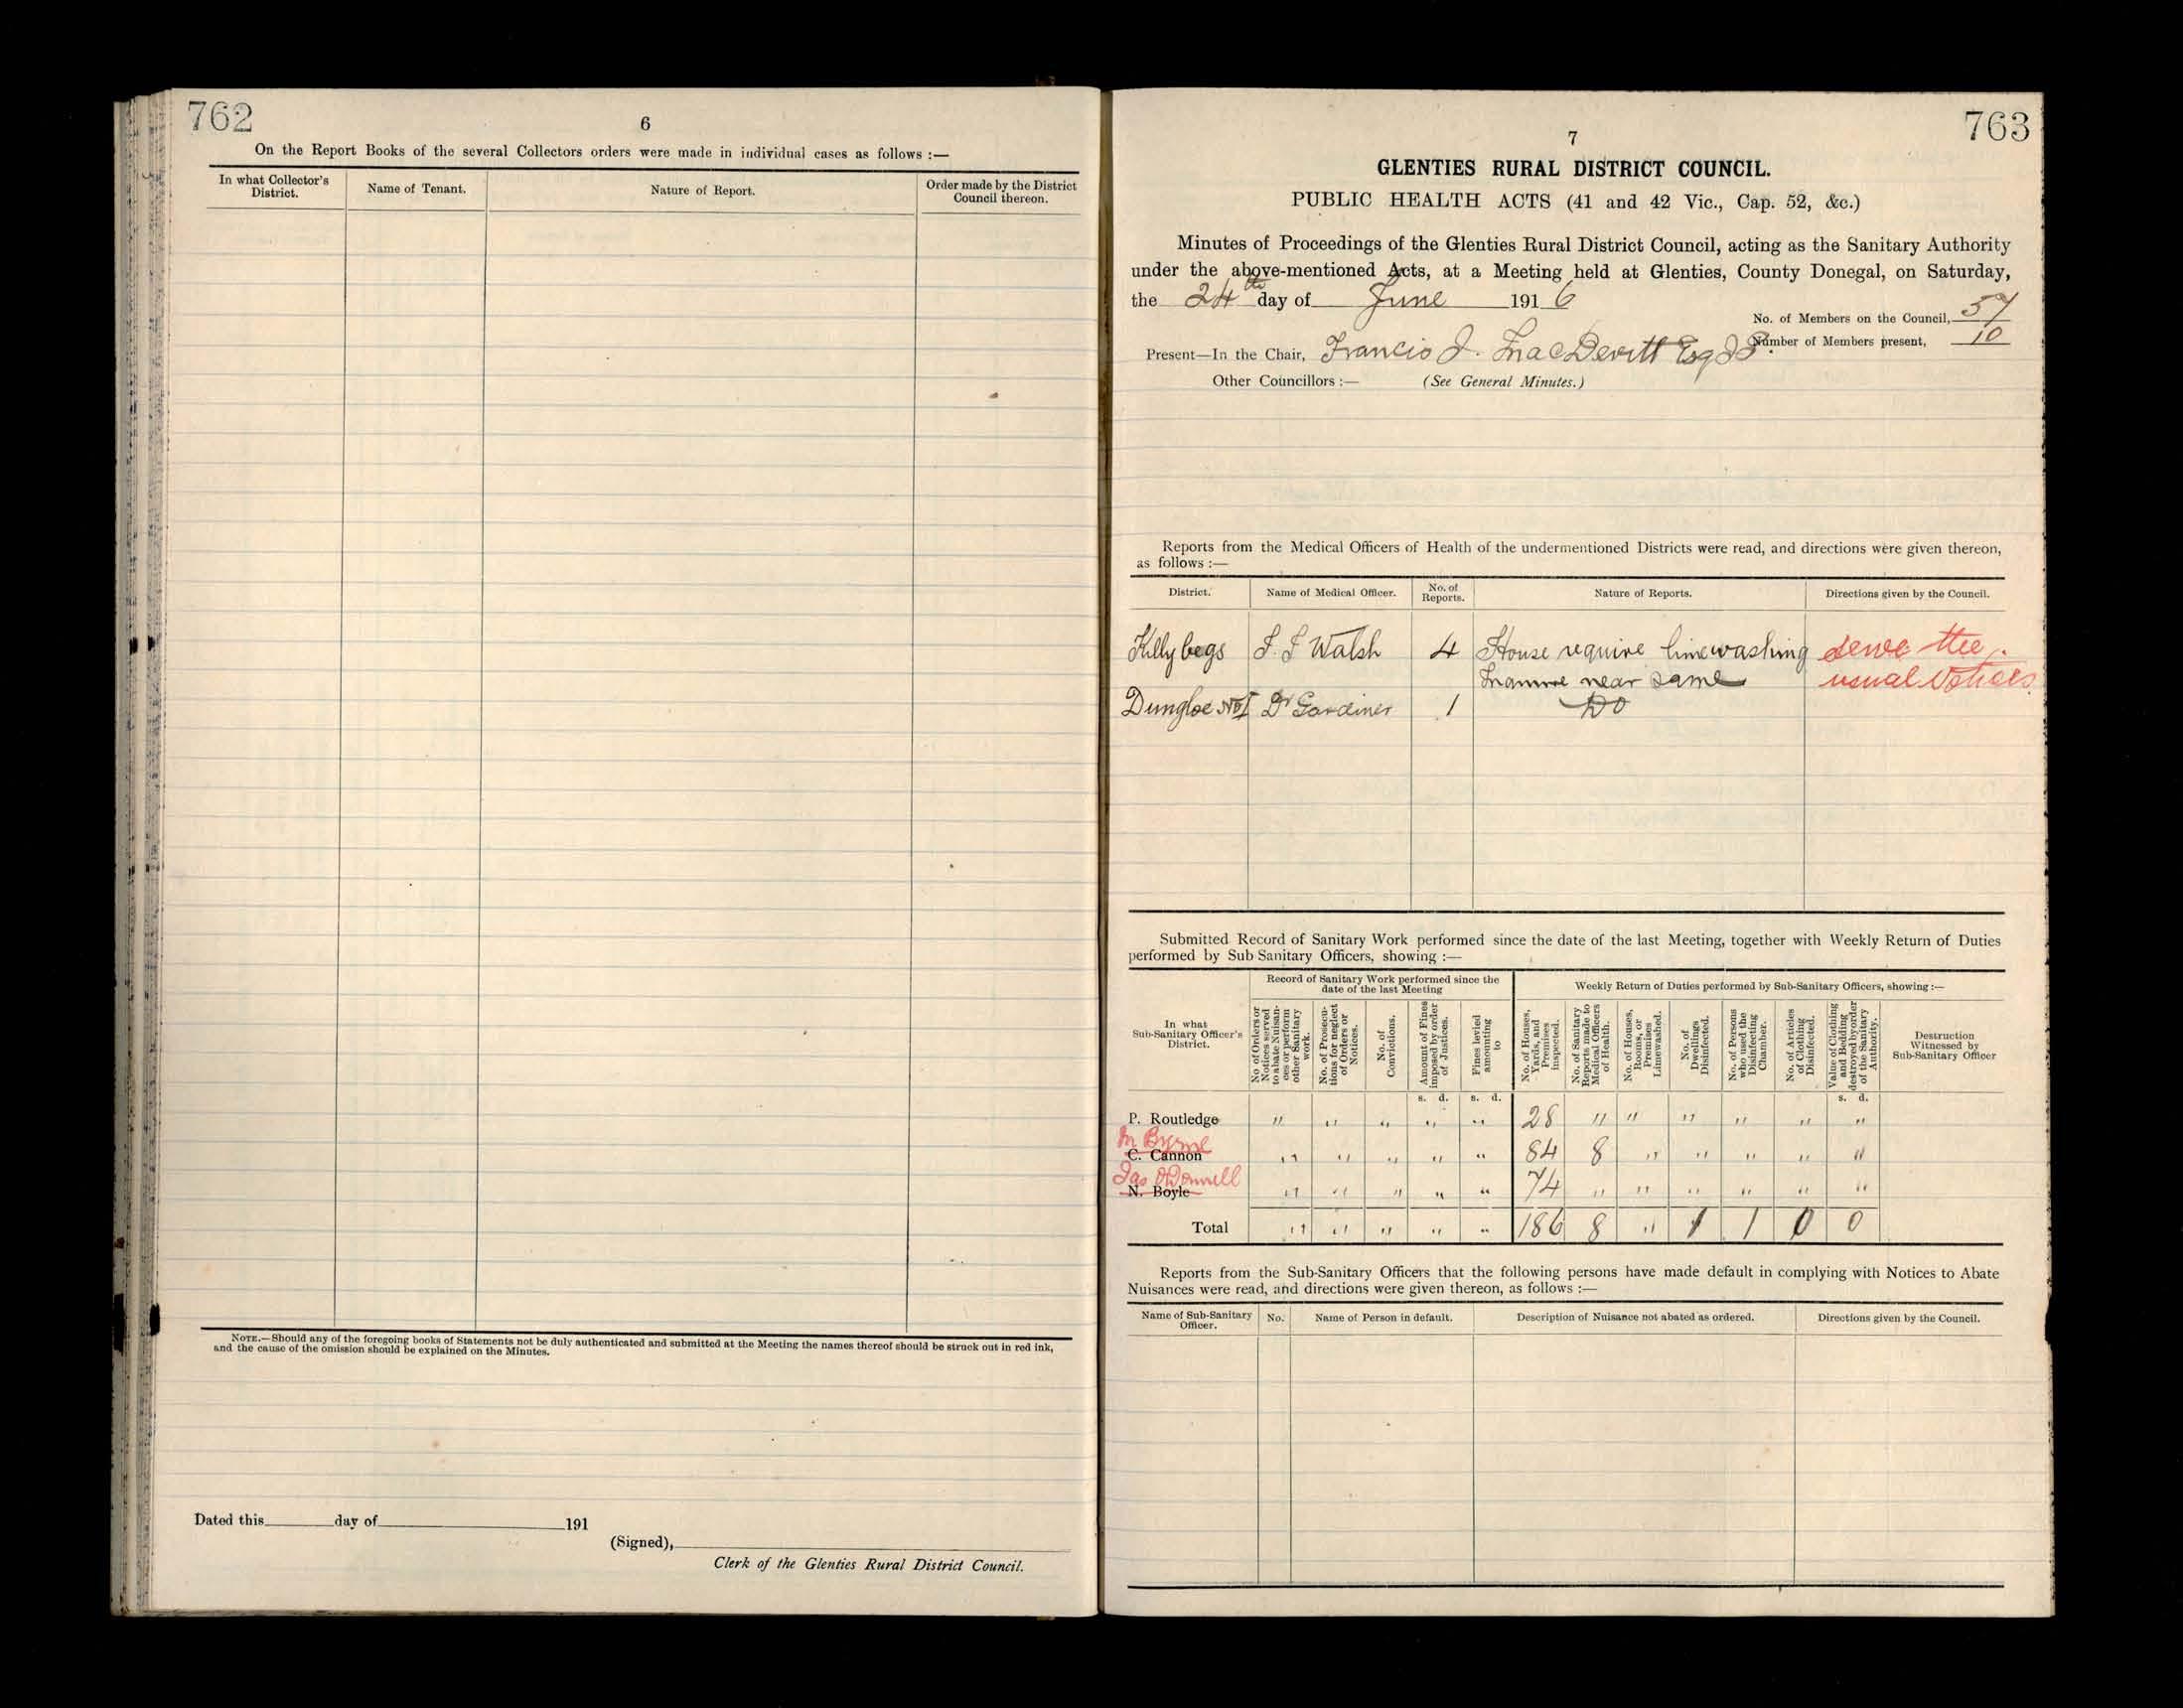 762
6
On the Report Books of the several Collectors orders were made in individual cases as follows :—
In what Collector's District.
Name of Tenant.
Nature of Report.
Order made by the District Council thereon.
NOTE.—Should any of the foregoing books of Statements not be duly authenticated and submitted at the Meeting the names thereof should be struck out in red ink,
and the cause of the omission should be explained on the Minutes.
Dated this day of 191
(Signed),
Clerk of the Glenties Rural District Council.
763
7
GLENTIES RURAL DISTRICT COUNCIL.
PUBLIC HEALTH ACTS (41 and 42 Vic., Cap. 52, &c.)
Minutes of Proceedings of the Glenties Rural District Council, acting as the Sanitary Authority
under the above-mentioned Acts, at a Meeting held at Glenties, County Donegal, on Saturday,
the 24th day of June 1916
No. of Members on the Council, 57
Number of Members present, 10
Present—In the Chair, Francis J. MacDevitt Esq J.P.
Other Councillors :— (See General Minutes.)
Reports from the Medical Officers of Health of the undermentioned Districts were read, and directions were given thereon,
as follows :—
District. Name of Medical Officer. No. of Reports. Nature of Reports. Directions given by the Council.
Killybegs Walsh 4 House require limewashing serve the
Manure near same usual Notices
Dungloe No I Dr Gardiner 1 Do
Submitted Record of Sanitary Work performed since the date of the last Meeting, together with Weekly Return of Duties
performed by Sub Sanitary Officers, showing :—
Record of Sanitary Work performed since the date of the last Meeting
Weekly Return of Duties performed by Sub-Sanitary Officers, showing :—
In what Sub-Sanitary Officer's District.
No of Orders or Notices served to abate Nuisances or perform other Sanitary work.
No. of Prosecutions for neglect of Orders or Notices.
No. of Convictions.
Amount of Fines imposed by order of Justices.
Fines levied amounting to
No. of Houses, Yards, and Premises inspected.
No. of Sanitary Reports made to Medical Officers of Health.
No. of Houses, Rooms, or Premises Limewashed.
No. of Dwellings Disinfected.
No. of Persons who used the Disinfecting Chamber.
No. of Articles of Clothing Disinfected.
Value of Clothing and Bedding destroyed by order of the Sanitary Authority.
Destruction Witnessed by Sub-Sanitary Officer
s. d. s. d. s. d.
P. Routledge " " " " " 28 " " " " " "
M Byrne
C. Cannon " " " " " 84 8 " " " " "
Jas O'Donnell
N. Boyle " " " " " 74 " " " " " "
Total " " " " " 186 8 " 1 1 0 0
Reports from the Sub-Sanitary Officers that the following persons have made default in complying with Notices to Abate
Nuisances were read, and directions were given thereon, as follows :—
Name of Sub-Sanitary Officer. No. Name of Person in default. Description of Nuisance not abated as ordered. Directions given by the Council.